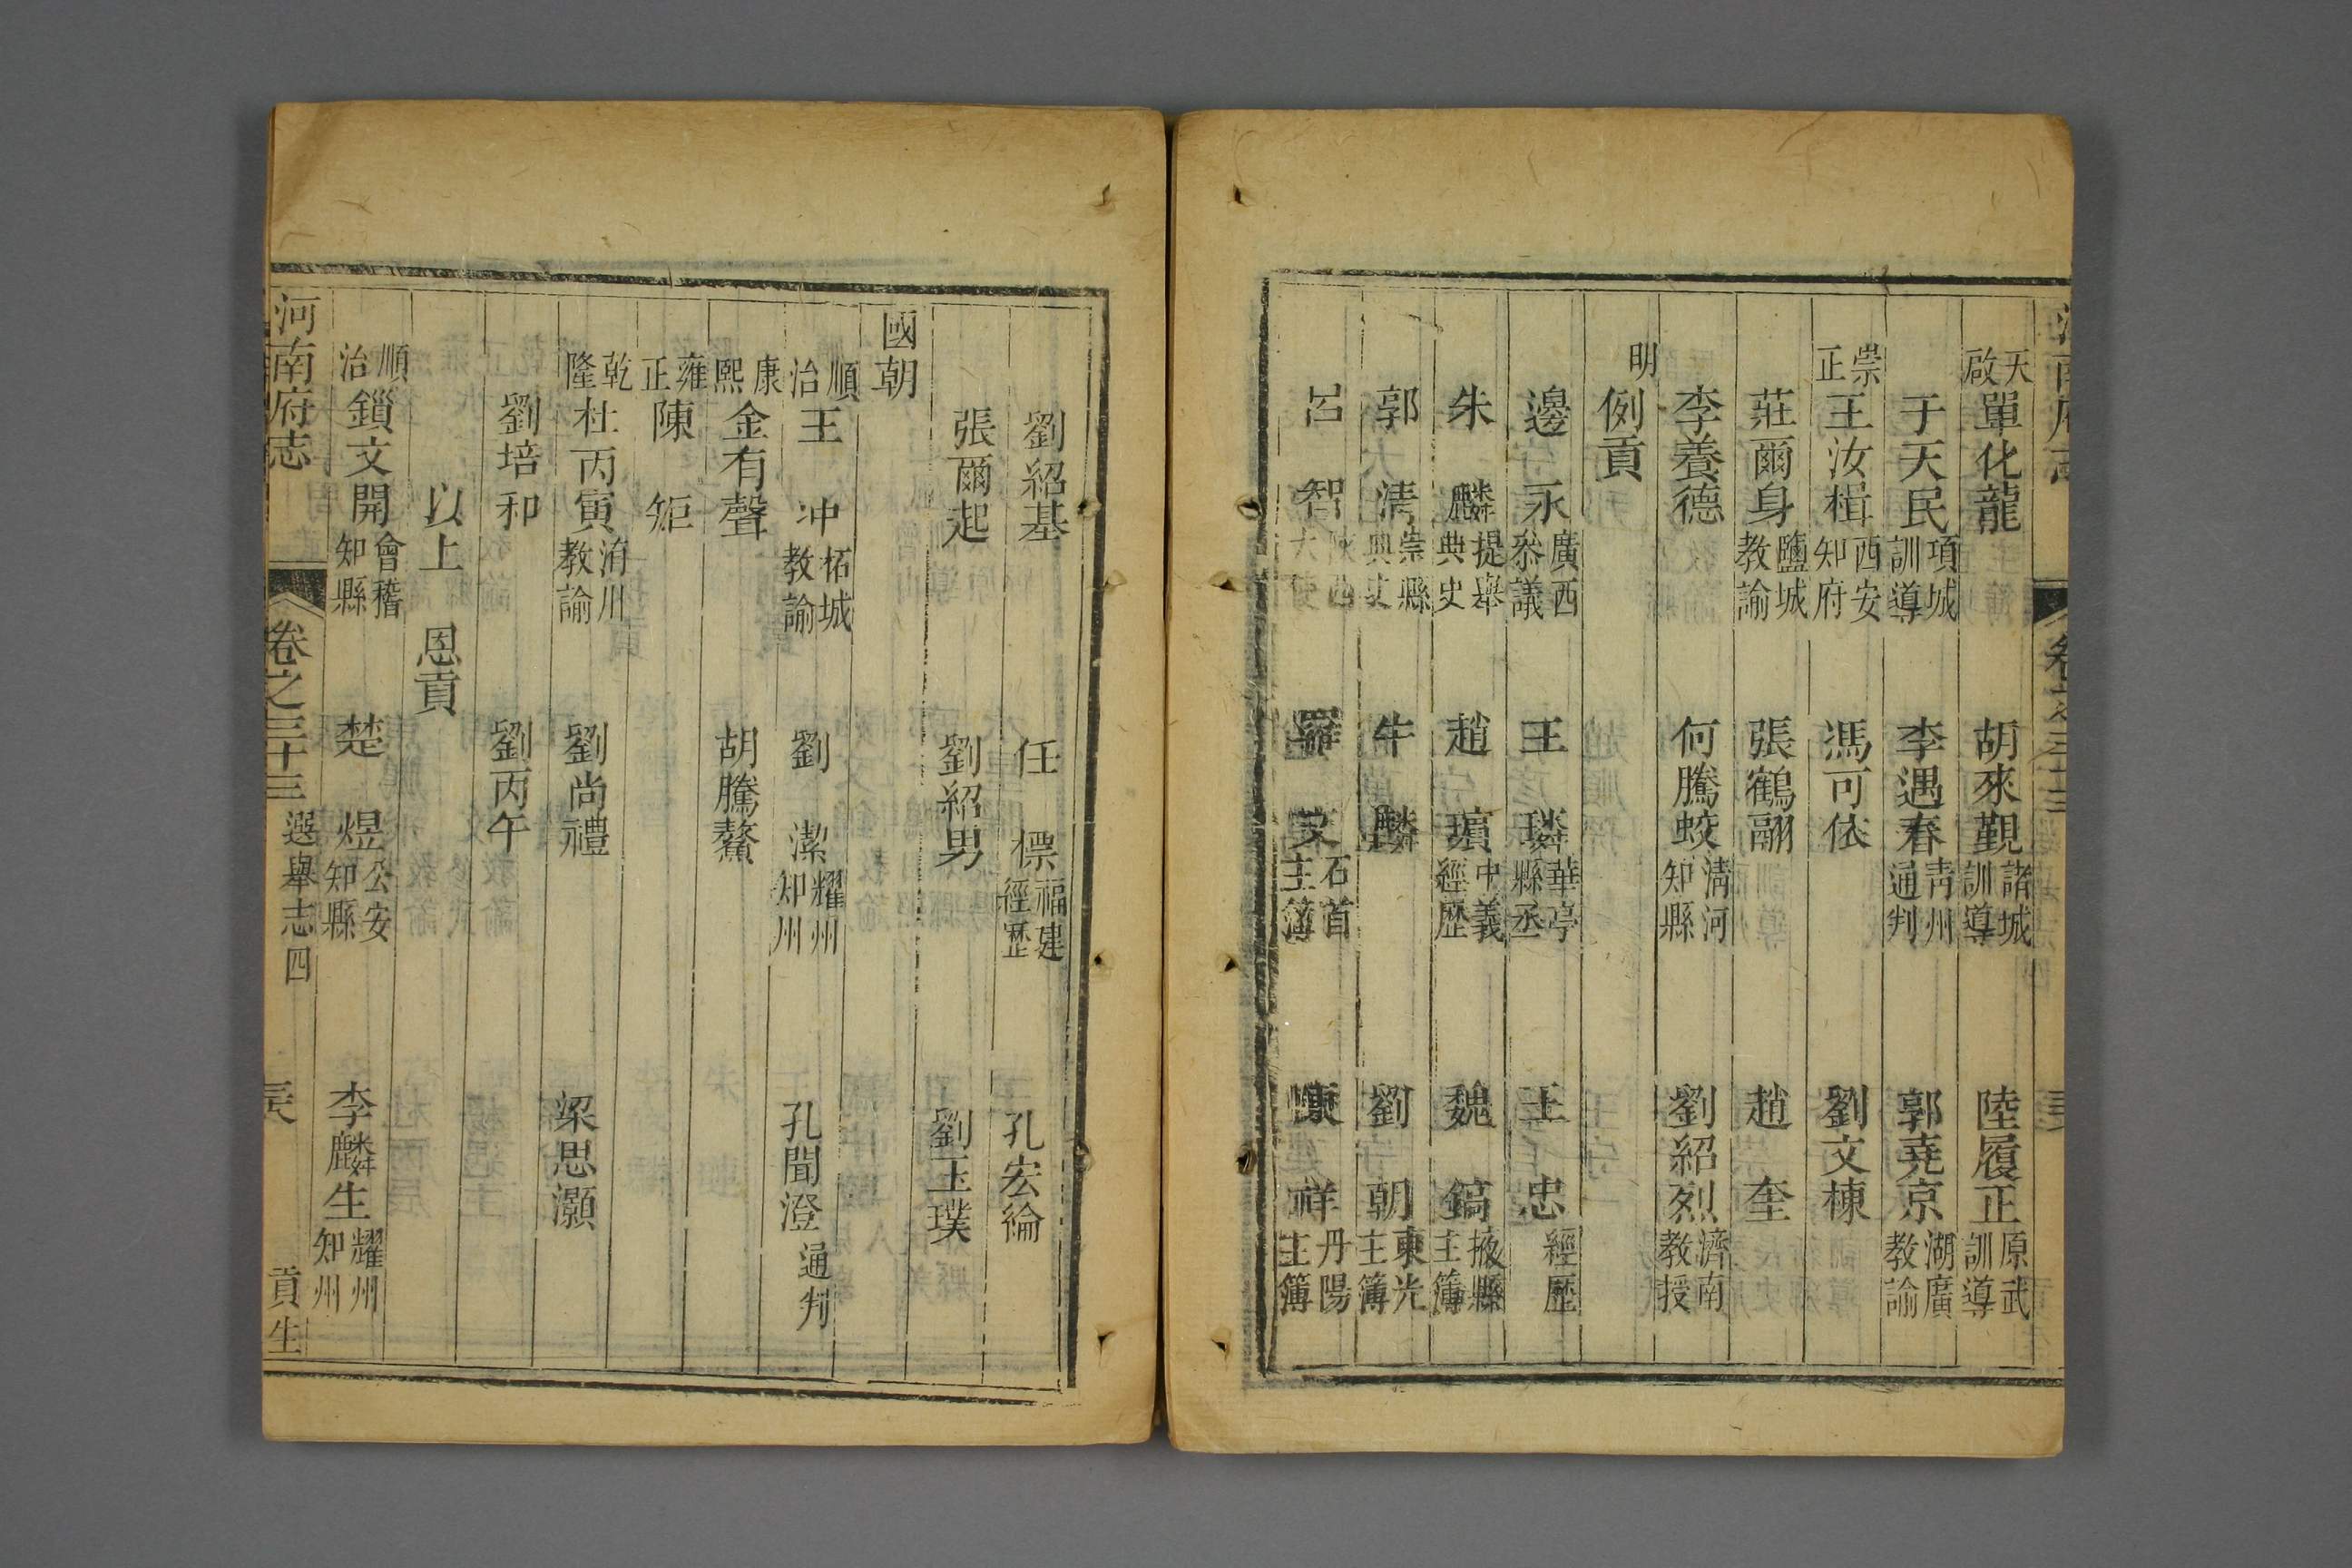 天啟 單化龍 胡來覲 諸城訓導 陸履正 原武訓導
于天民 項城訓導 李遇春 青州通判 郭堯京 湖廣教諭
崇正 王汝楫 西安知府 馮可依 劉文棟
莊爾身 鹽城教諭 張鶴翮 趙奎
李養德 何騰蛟 清河知縣 劉紹烈 濟南教授
明 例貢
邊永 廣西叅議 王璘 華亭縣丞 王忠 經歷
朱麟 提舉典史 趙璸 中義經歷 魏鎬 掖縣主簿
郭清 崇縣典史 牛麟 劉朝 東光主簿
呂智 陜西大使 羅 石首主簿 祥 丹陽主簿
劉紹基 任標 福建經歷 孔宏綸
張爾起 劉紹男 劉玉璞
國朝
順治 王冲 柘城教諭 劉潔 耀州知州 孔聞澄 通判
康熙 金有聲 胡騰鰲
雍正 陳矩
乾隆 杜丙寅 洧川教諭 劉尚禮 梁思灝
劉培和 劉丙午
以上 恩貢
順治 鎻文開 會稽知縣 楚煜 公安知縣 李麟生 耀州知州
河南府志 卷之三十三 選舉志四 貢生